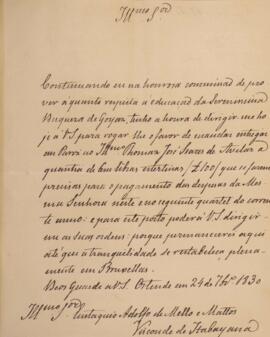 Ill.mo Snr
Continuando eu na honrosa commissaõ de pro
ver a quanto respeita a educaçaõ da Serenissima
Duqueza de Goyaz, tenho a honra de dirigir-me ho
je a V.S. para rogar-lhe o favor de mandar entregar
em Pariz ao Illmo Thomaz José Soares de Avellar a
quantia de cem libras esterlinas /£100/ que se fazem
precisas para o pagamento das despezas da Mes
ma Senhora neste e no seguinte quartel do corren
te anno: e para este porto poderá V.S. dirigir-
me as suas ordens; porque permanecerei aqui
até que a tranquilidade se restabeleça plena
mente em Bruxellas.
Deos Guarde a V.S. Ostende em 24 de 7bro 1830
Illmo Snr
Eustaquio Adolfo de Mello e Mattos
Visconde de Itabayana